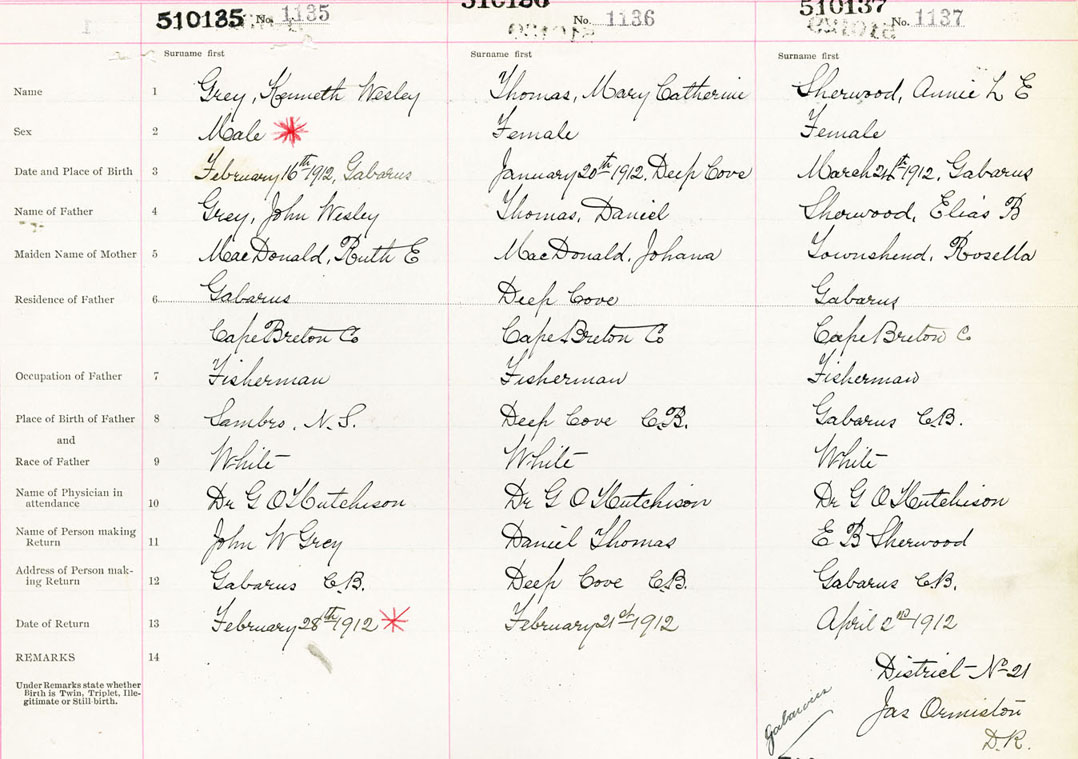 510135 No. 1135
510136 No. 1136
510137 No. 1137
Surname first Surname first Surname first
Name 1 Grey, Kenneth Wesley Thomas, Mary Catherine Sherwood, Annie L E
Sex 2 Male Female Female
Date and Place of Birth 3 February 16th 1912, Gabarus January 20th 1912, Deep Cove March 24th 1912, Gabarus
Name of Father 4 Grey, John Wesley Thomas, Daniel Sherwood, Elias B
Maiden Name of Mother 5 MacDonald, Ruth E MacDonald, Johana Townshend, Rosella
Residence of Father 6 Gabarus Deep Cove Gabarus
Cape Breton Co Cape Breton Co Cape Breton C
Occupation of Father 7 Fisherman Fisherman Fisherman
Place of Birth of Father 8 Sambro, N.S. Deep Cove C.B. Gabarus C.B.
and
Race of Father 9 White White White
Name of Physician in
attendance 10 Dr G O Hutchison Dr G O Hutchison Dr G O Hutchison
Name of Person making
Return 11 John W Grey Daniel Thomas E B Sherwood
Address of Person mak-
ing Return 12 Gabarus C.B. Deep Cove C.B. Gabarus C.B.
Date of Return 13 February 28th 1912 February 21st 1912 April 2nd 1912
REMARKS 14
Under Remarks state whether
Birth is Twin, Triplet, Ille-
gitimate or Still-birth.
District No 21
Jas Ormiston
D.R.
Gabarous